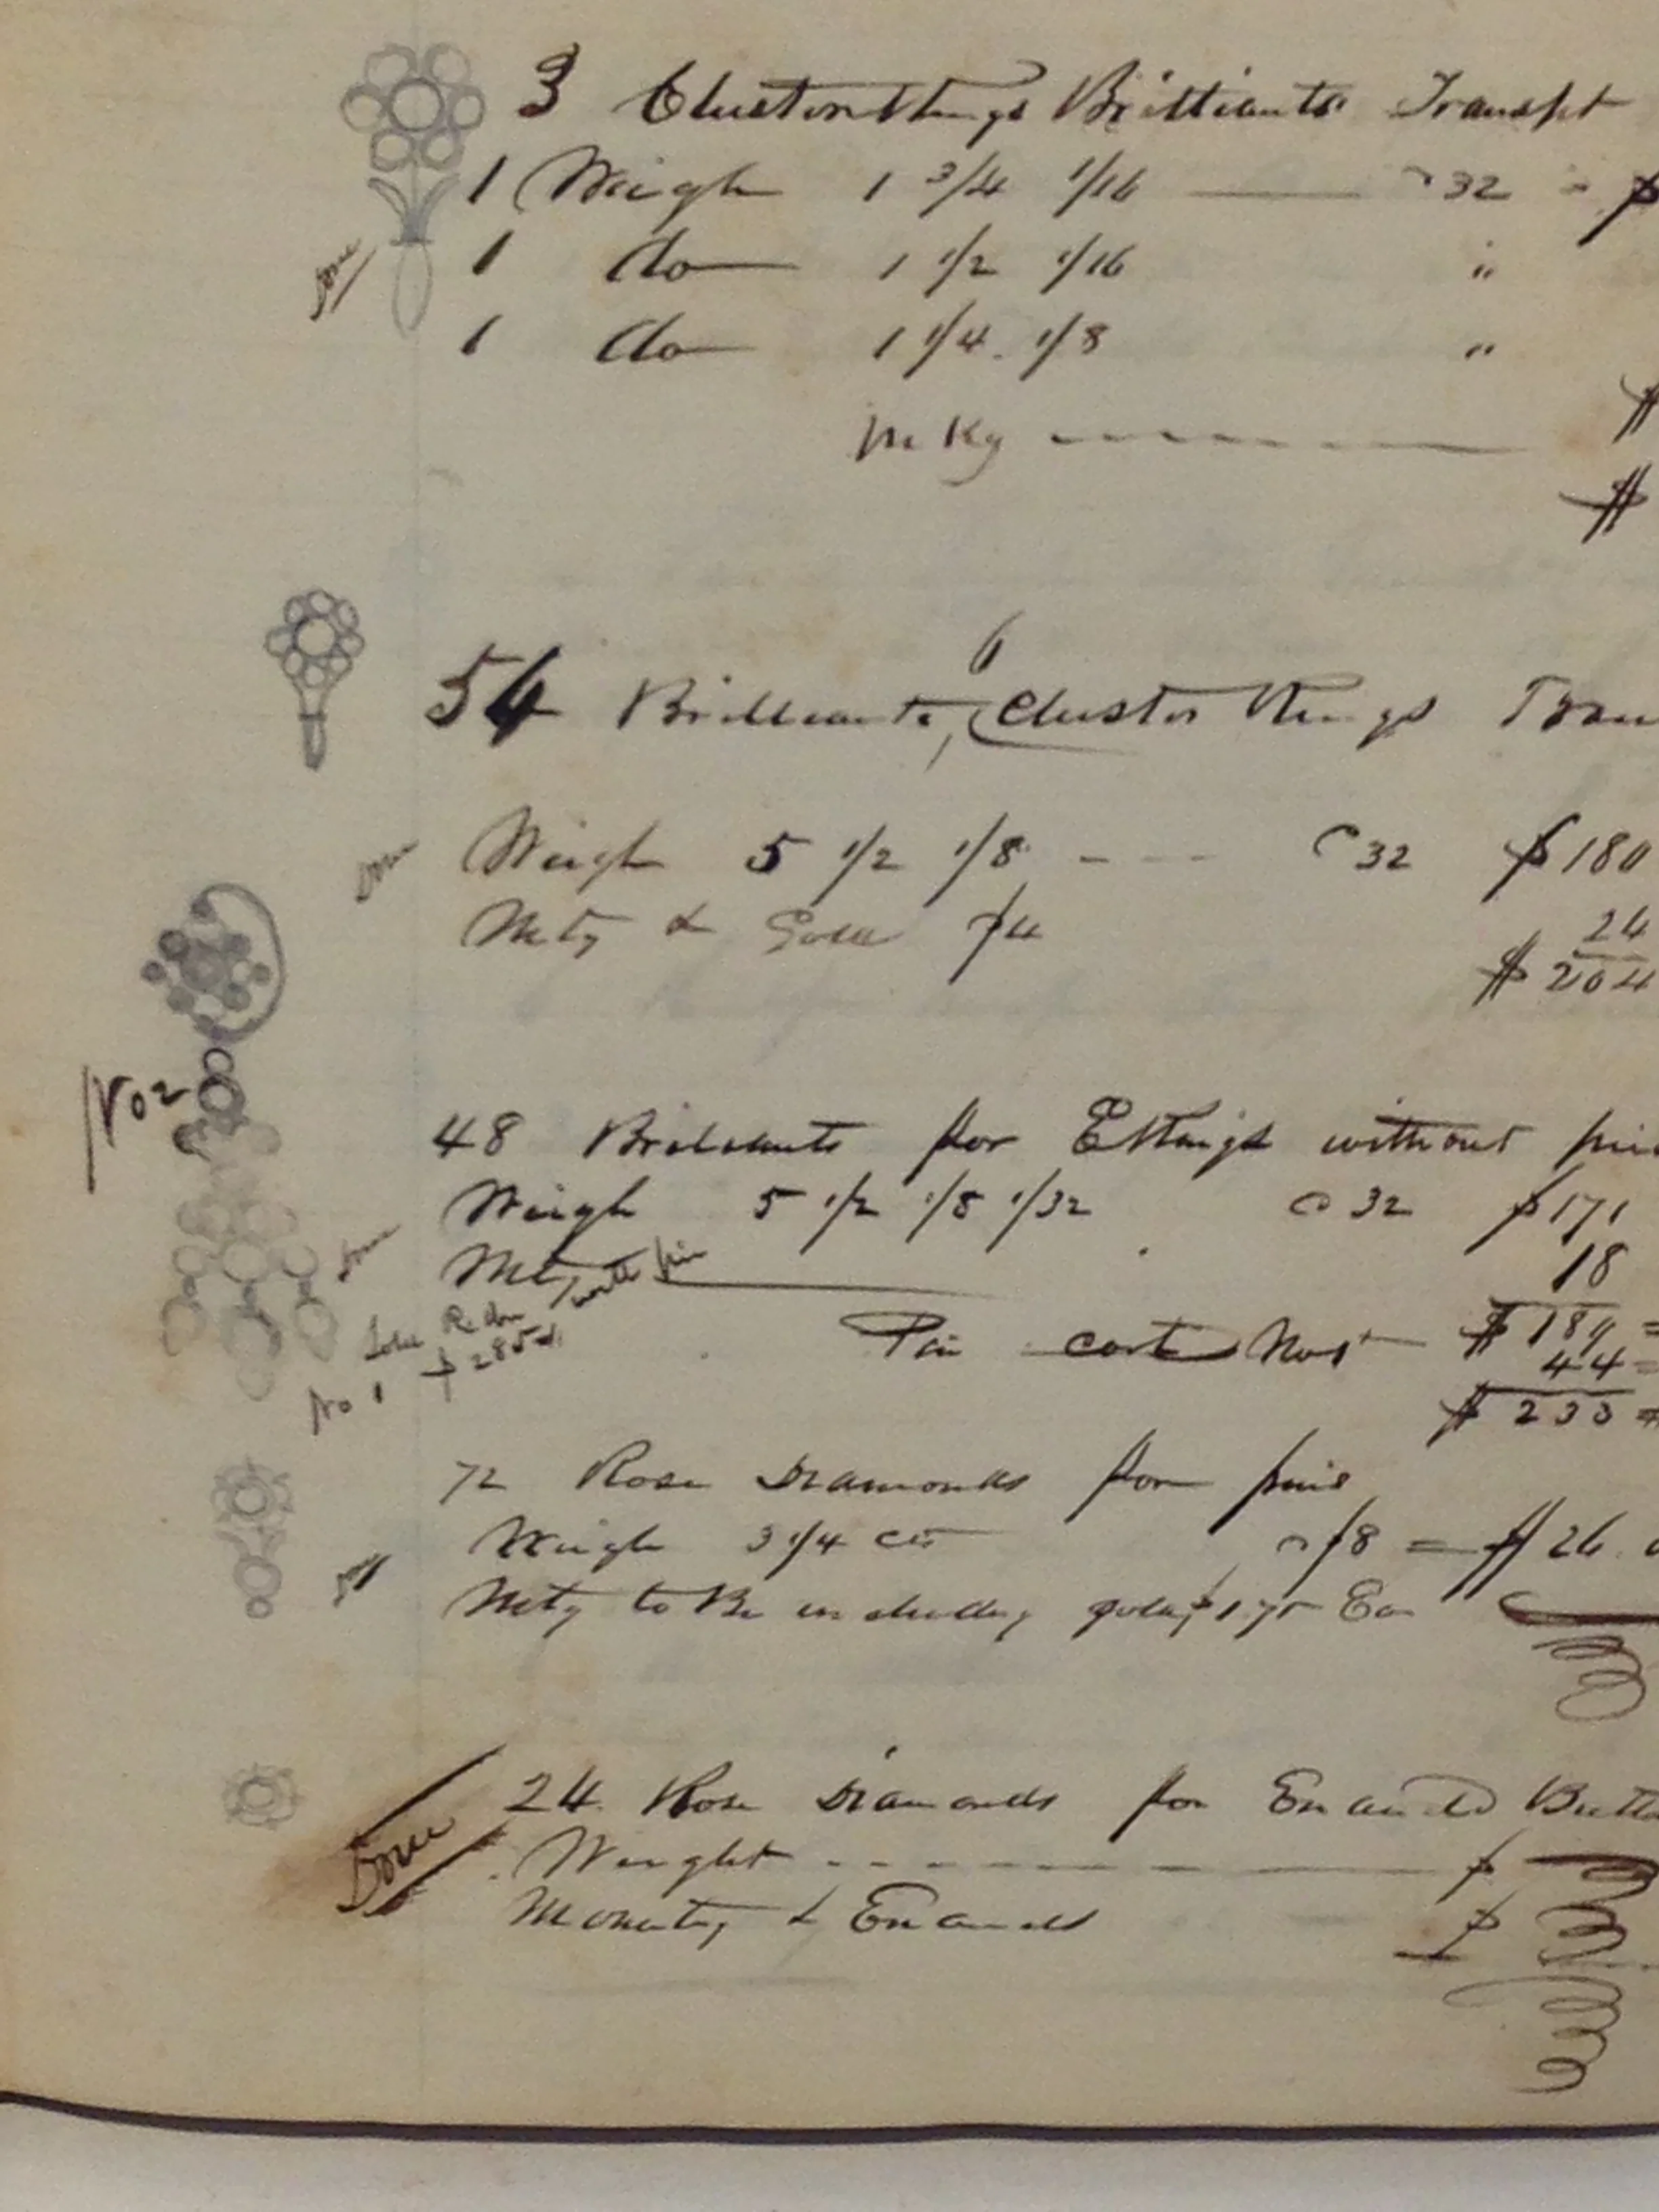 3 Cluster Rings Brilliants Transpt
1 Weigh 1 3/4 1/16 — 32 = $
done
1 do 1 1/2 1/16 "
1 do 1 1/4 1/8 "
M Kg — $
$
54 Brilliants, 6 Cluster Rings Tran
done
Weigh 5 1/2 1/8 - - - @ 32 $180
Mtg & Gold $4 24
$204
No 2
48 Brilliants for E Rings without pin
Weigh 5 1/2 1/8 1/32 @ 32 $171
done
Mtg with pin — 18
Sold R
Pin cost No 1 — $189 =
No 1 $285
44 =
$233 =
72 Rose Diamonds for pins
Weigh 3 1/4 cts @ $8 = $26
Mtg to Be including gold, $1 75 Ea
24 Rose Diamonds for Enameld Butto
Done
Weight - - - — $
Mounting & Enamel $